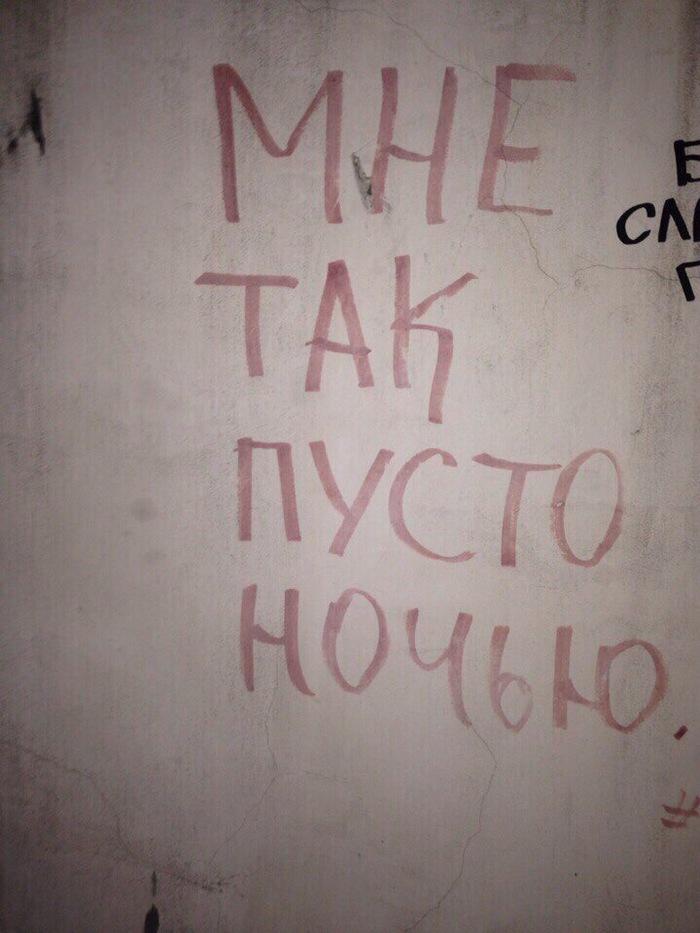 МНЕ
ТАК
ПУСТО
НОЧЬЮ.
#